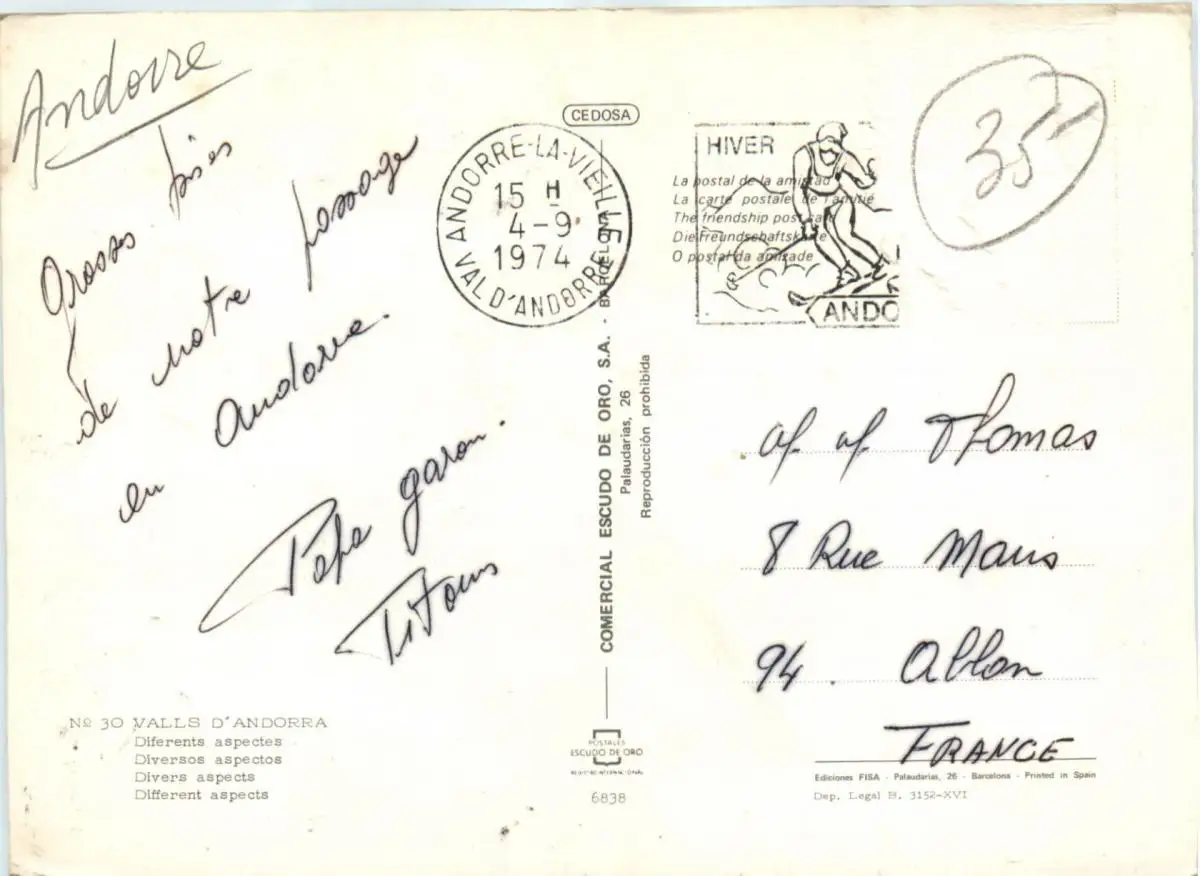 Andorre
Grosses bises
de notre passage
en Andorre.
Pépé garou.
Titous
Nº 30 VALLS D'ANDORRA
Diferents aspectes
Diversos aspectos
Divers aspects
Different aspects
CEDOSA
ANDORRE-LA-VIEILLE
15 H
4-9
1974
VAL D'ANDORRE
COMERCIAL ESCUDO DE ORO, S.A. · BARCELONA
Palaudarias, 26
Reproducción prohibida
POSTALES
ESCUDO DE ORO
6838
HIVER
La postal de la amistad
La carte postale de l'amitié
The friendship post card
Die Freundschaftskarte
O postal da amizade
ANDO
35
Thomas
8 Rue Maus
94. Ablon
FRANCE
Ediciones FISA - Palaudarias, 26 - Barcelona - Printed in Spain
Dep. Legal B. 3152-XVI